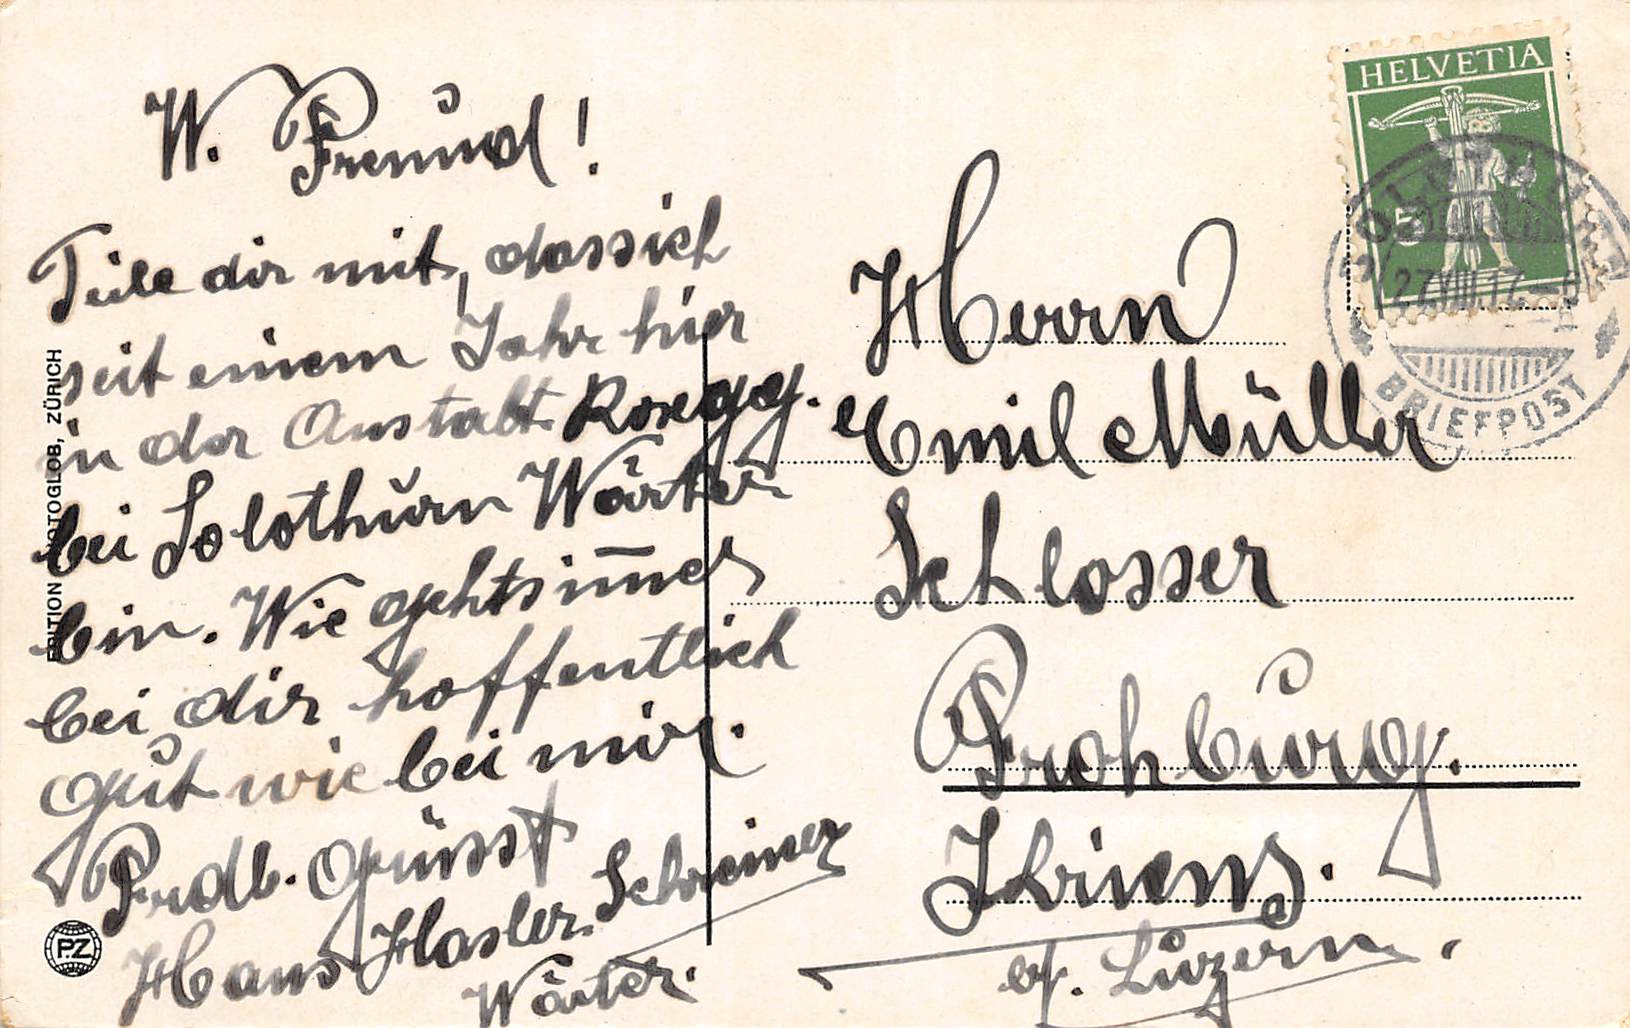 W. Freund!
Teile dir mit, dass ich
seit einem Jahr hier
in der Anstalt Rosegg.
bei Solothurn Wärter
bin. Wie gehts im̅er
bei dir hoffentlich
gut wie bei mir.
Frdl. Grüsst
Hans Hasler. Schreiner
Wärter.
Herrn
Emil Müller
Schlosser
Frohburg.
Kriens.
Luzern.
HELVETIA
5
27.VIII.17
BRIEFPOST
EDITION PHOTOGLOB, ZÜRICH
P.Z